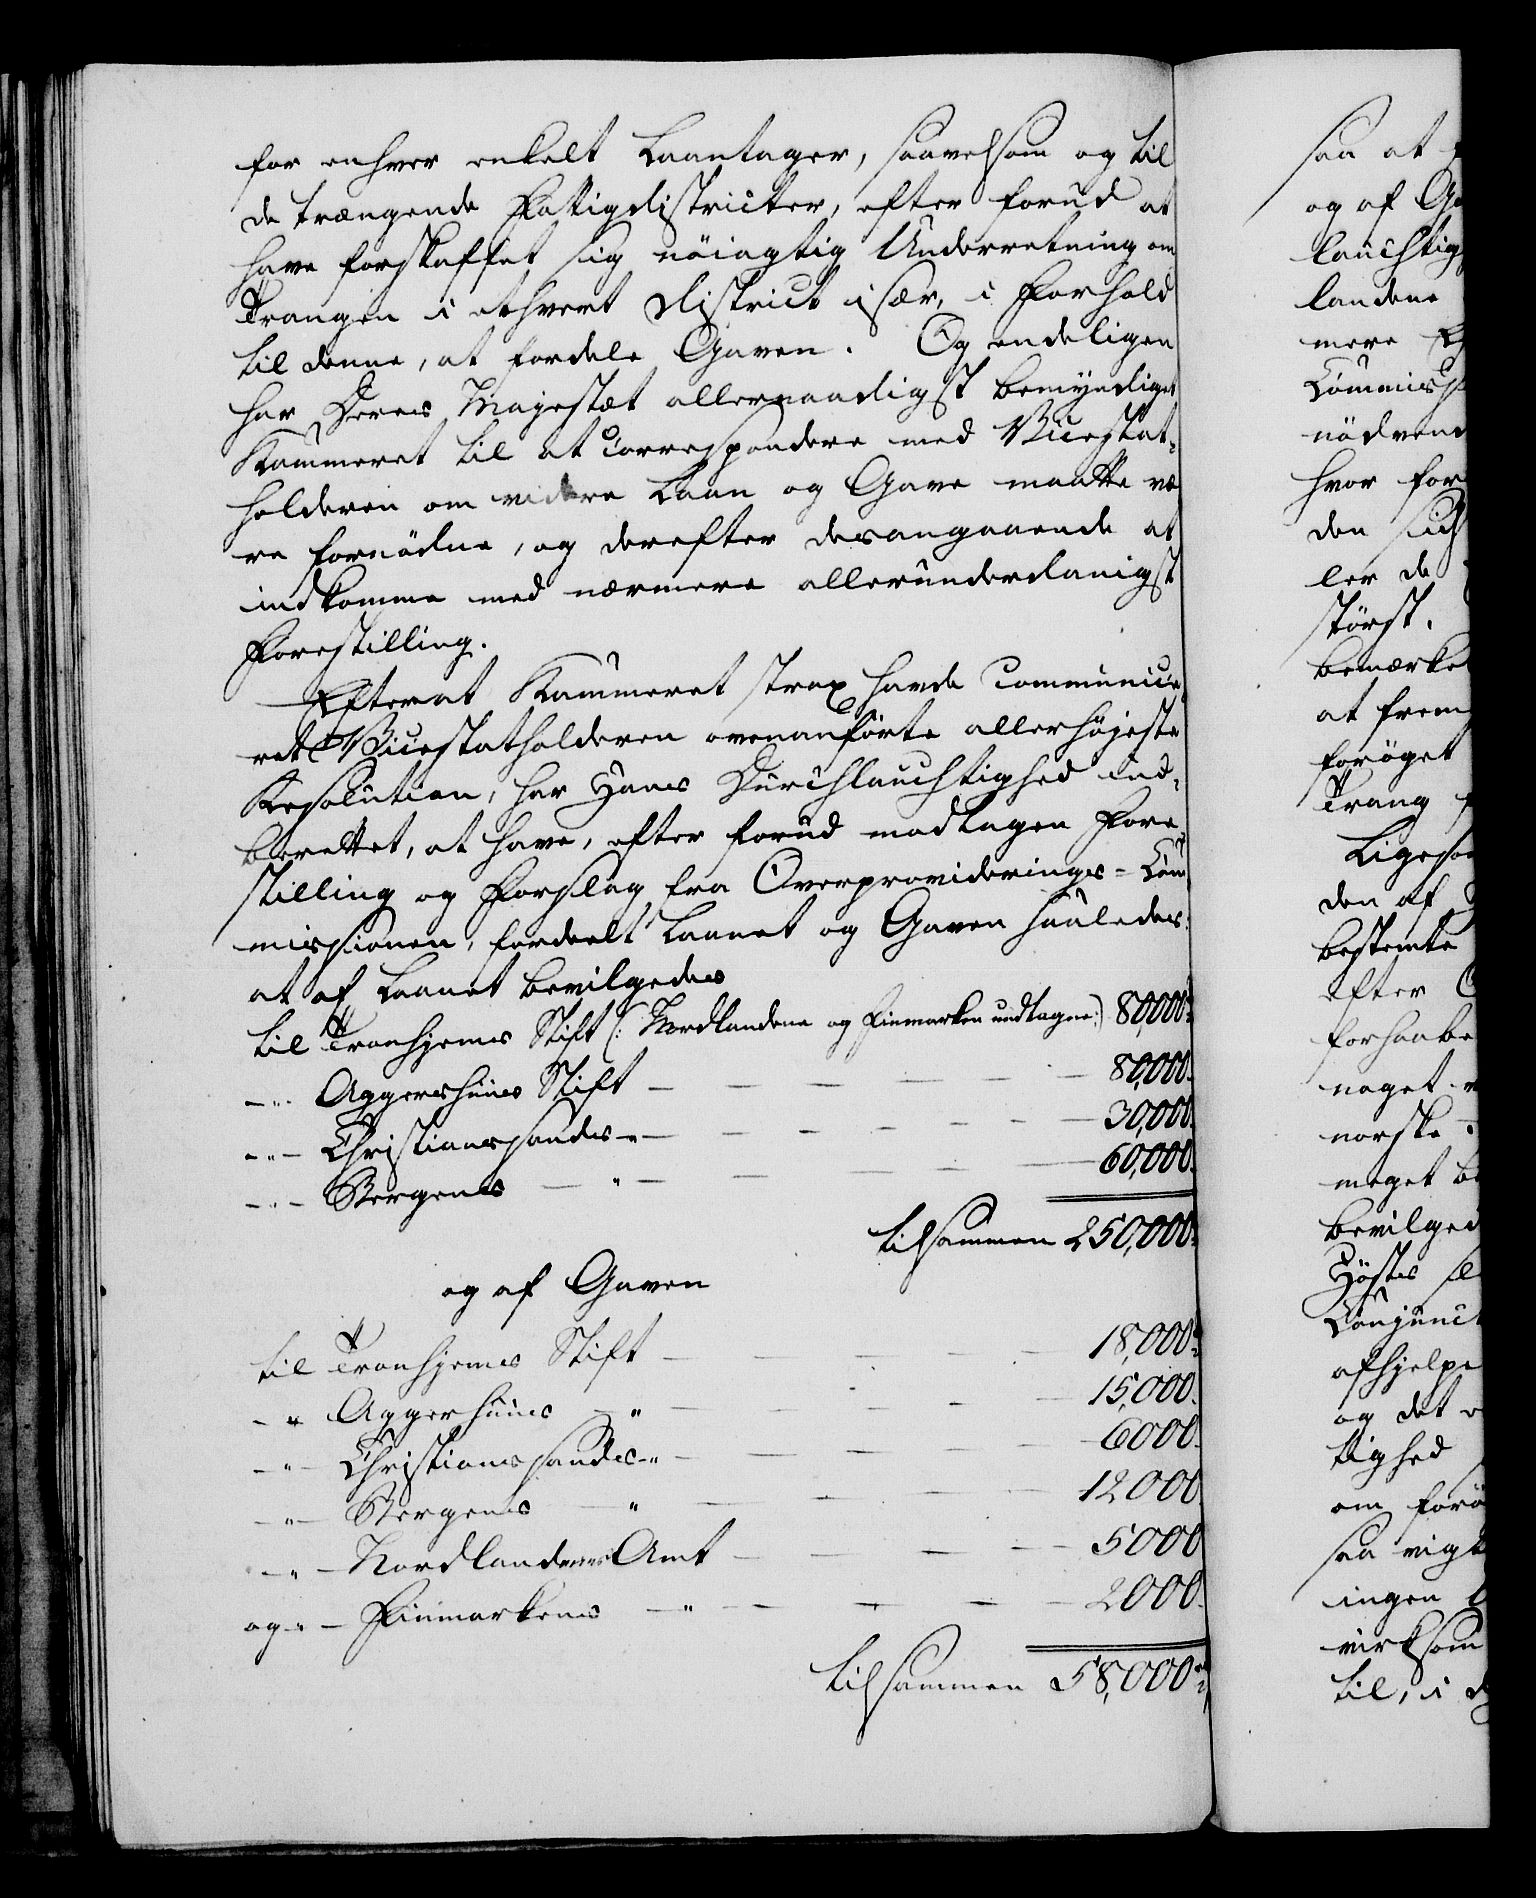 for enhver enkelt Laantager, saavelsom og til
de trængende Fattigdistricter, efter forud at
have forskaffet sig nöiagtig Underretning om
Trangen i ethvert District især, i Forhold
til denne, at fordele Gaven. Og endeligen
har Deres Majestæt allernaadigst bemyndiget
Kammeret til at correspondere med Vicestat-
holderen om videre Laan og Gave maatte væ
re fornödne, og derefter desangaaende at
indkomme med nærmere allerunderdanigst
Forestilling.
Efterat Kammeret strax havde communice
ret Vicestatholderen ovenanförte allerhöjeste
Resolution, har Hans Durchlauchtighed ind-
berettet, at have, efter forud modtagen Fore
stilling og Forslag fra Overproviderings-Com
missionen, fordeelt Laanet og Gaven saaledes:
at af Laanet bevilgedes
til Tronhjems Stift (: Nordlandene og Finmarken undtagne :) 80,000
-"- Aggershuus Stift - - - - - - 80,000.
-"- Christianssandes -"- - - - - - 30,000.
-"- Bergens - " - - - - - 60,000.
tilsammen 250,000
og af Gaven
til Tronhjems Stift - - - - - 18,000
-"- Aggershuus - " - - - - - 15,000.
-"- Christianssandes -"- - - - - 6000.
-"- Bergens - " - - - - - 12000.
-"- Nordlandenes Amt - - - - - 5000
og -"- Finmarkens - " - - - - - 2000.
tilsammen 58,000
saa at
og af
lauchtig
landene
mere
Commiss
nödvend
hvor for
den
ler de
störst.
bemærke
at frem
foröget
Trang
Ligesom
den af
bestemte
efter
forhaabe
noget
norske
meget
bevilged
Höstes
Conjunct
afhjelpe
og det
tighed
om forö
saa vigt
ingen
virksom
til, i